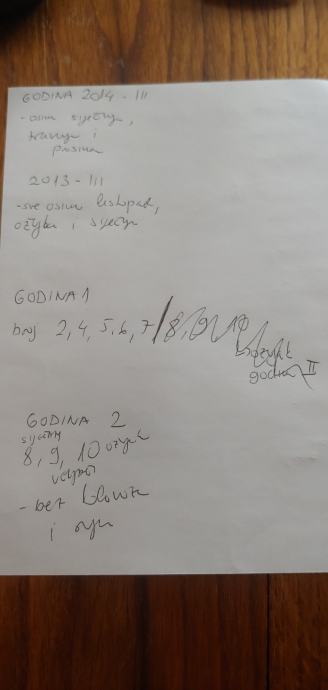 GODINA 2014 - III
- osim siječnja,
travnja i
prosinca
2013 - III
- sve osim listopad,
ožujka i siječnja
GODINA 1
broj 2, 4, 5, 6, 7 / 8, 9, 10
ožujak
godina II
GODINA 2
siječanj
8, 9, 10 ožujak
veljača
- bez
i